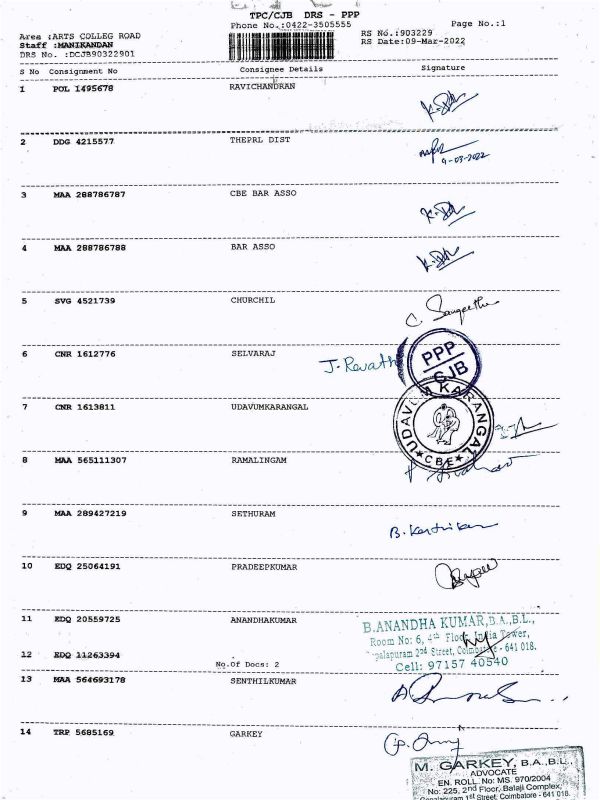 TPC/CJB DRS - PPP
Phone No.:0422-3505555 Page No.:1
Area :ARTS COLLEG ROAD RS No.:903229
Staff :MANIKANDAN RS Date:09-Mar-2022
DRS No. :DCJB90322901
S No Consignment No Consignee Details Signature
1 POL 1495678 RAVICHANDRAN
2 DDG 4215577 THEPRL DIST
9-03-2022
3 MAA 288786787 CBE BAR ASSO
4 MAA 288786788 BAR ASSO
5 SVG 4521739 CHURCHIL C. Sangeetha
6 CNR 1612776 SELVARAJ J. Revathi
PPP
CJB
7 CNR 1613811 UDAVUMKARANGAL
UDAVUM KARANGAL
★ CBE ★
8 MAA 565111307 RAMALINGAM
9 MAA 289427219 SETHURAM
B. Karthikan
10 EDQ 25064191 PRADEEPKUMAR
11 EDQ 20559725 ANANDHAKUMAR
B.ANANDHA KUMAR,B.A.,B.L.,
Room No: 6, 4th Floor, India Tower,
2nd Street, Coimbatore - 641 018.
Cell: 97157 40540
12 EDQ 11263394
No.Of Docs: 2
13 MAA 564693178 SENTHILKUMAR
14 TRP 5685169 GARKEY
M. GARKEY, B.A.,B.L.,
ADVOCATE
EN. ROLL. No: MS. 970/2004
No: 225, 2nd Floor, Balaji Complex,
Gopalapuram 1st Street, Coimbatore - 641 018.